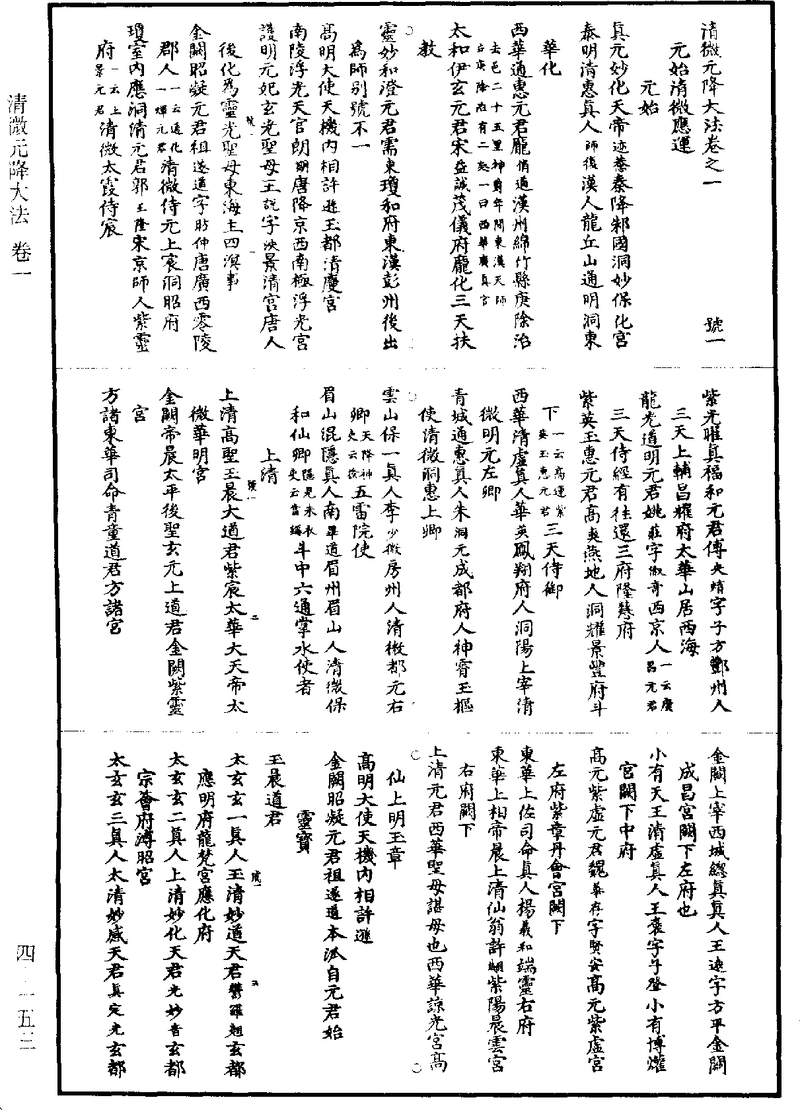 清微元降大法卷之一　號一
元始清微應運
元始
真元妙化天帝迹蔡泰降邾國洞妙保化宮
泰明清惠真人師後漢人龍丘山通明洞東
華化
西華通惠元君龐倩通漢州綿竹縣庚除治
去邑二十五里神爵年間東漢天師
云庚除治有二處一曰西華廣真宮
太和伊玄元君宋益誠茂儀府龐化三天扶
教
靈妙和澄元君需東瓊和府東漢彭州後出
為師別號不一
高明大使天機內相許遜玉都清慶宮
南陵浮光天官朗朗唐降京西南極浮光宮
護明元妃玄光聖母王說字泱景清宮唐人
後化為靈光聖母東海主四溟事
金闕昭凝元君祖遂道字昉仲唐廣西零陵
郡人一云通化一輝元君清微侍元上宸洞昭府
瓊室內應洞清元君郭玉隆宋京師人紫靈
府一云上景元君清微太霞侍宸
紫光曜真福和元君傅央焴字子方鄧州人
三天上輔昌耀府太華山居西海
龍光道明元君姚莊字淑奇西京人一云廣昌元君
三天侍經有往還三府隆慧府
紫英玉惠元君高奭燕地人洞耀景豐府斗
下一云高運紫英玉惠元君三天侍御
西華清虛真人華英鳳翔府人洞陽上宰清
微明元左卿
青城通惠真人朱洞元成都府人神霄玉樞
使清微洞惠上卿
雲山保一真人李少微房州人清微都元右
卿天降神史云徐五雷院使
眉山混隱真人南畢道眉州眉山人清微保
和仙卿隱見永衣史云當編斗中六通掌水使者
上清
上清高聖玉晨大道君紫宸太華大天帝太
微華明宮
金闕帝晨太平後聖玄元上道君金闕紫靈
宮
方諸東華司命青童道君方諸宮
金闕上宰西城總真真人王遠字方平金闕
成昌宮闕下左府也
小有天王清虛真人王褒字子登小有博爟
宮闕下中府
高元紫虛元君魏華存字賢安高元紫虛宮
左府紫章丹會宮闕下
東華上佐司命真人楊羲和端靈右府
東華上相帝晨上清仙翁許翽紫陽晨雲宮
右府闕下
上清元君西華聖母諶母也西華諒光宮高
仙上明玉章
高明大使天機內相許遜
金闕昭凝元君祖遂道本派自元君始
靈寶
玉晨道君
太玄玄一真人玉清妙道天君鬱羅翹玄都
應明府龍梵宮應化府
太玄玄二真人上清妙化天君光妙音玄都
宗薈府溥昭宮
太玄玄三真人太清妙感天君真定光玄都
清微元降大法　卷一
四‧一五三